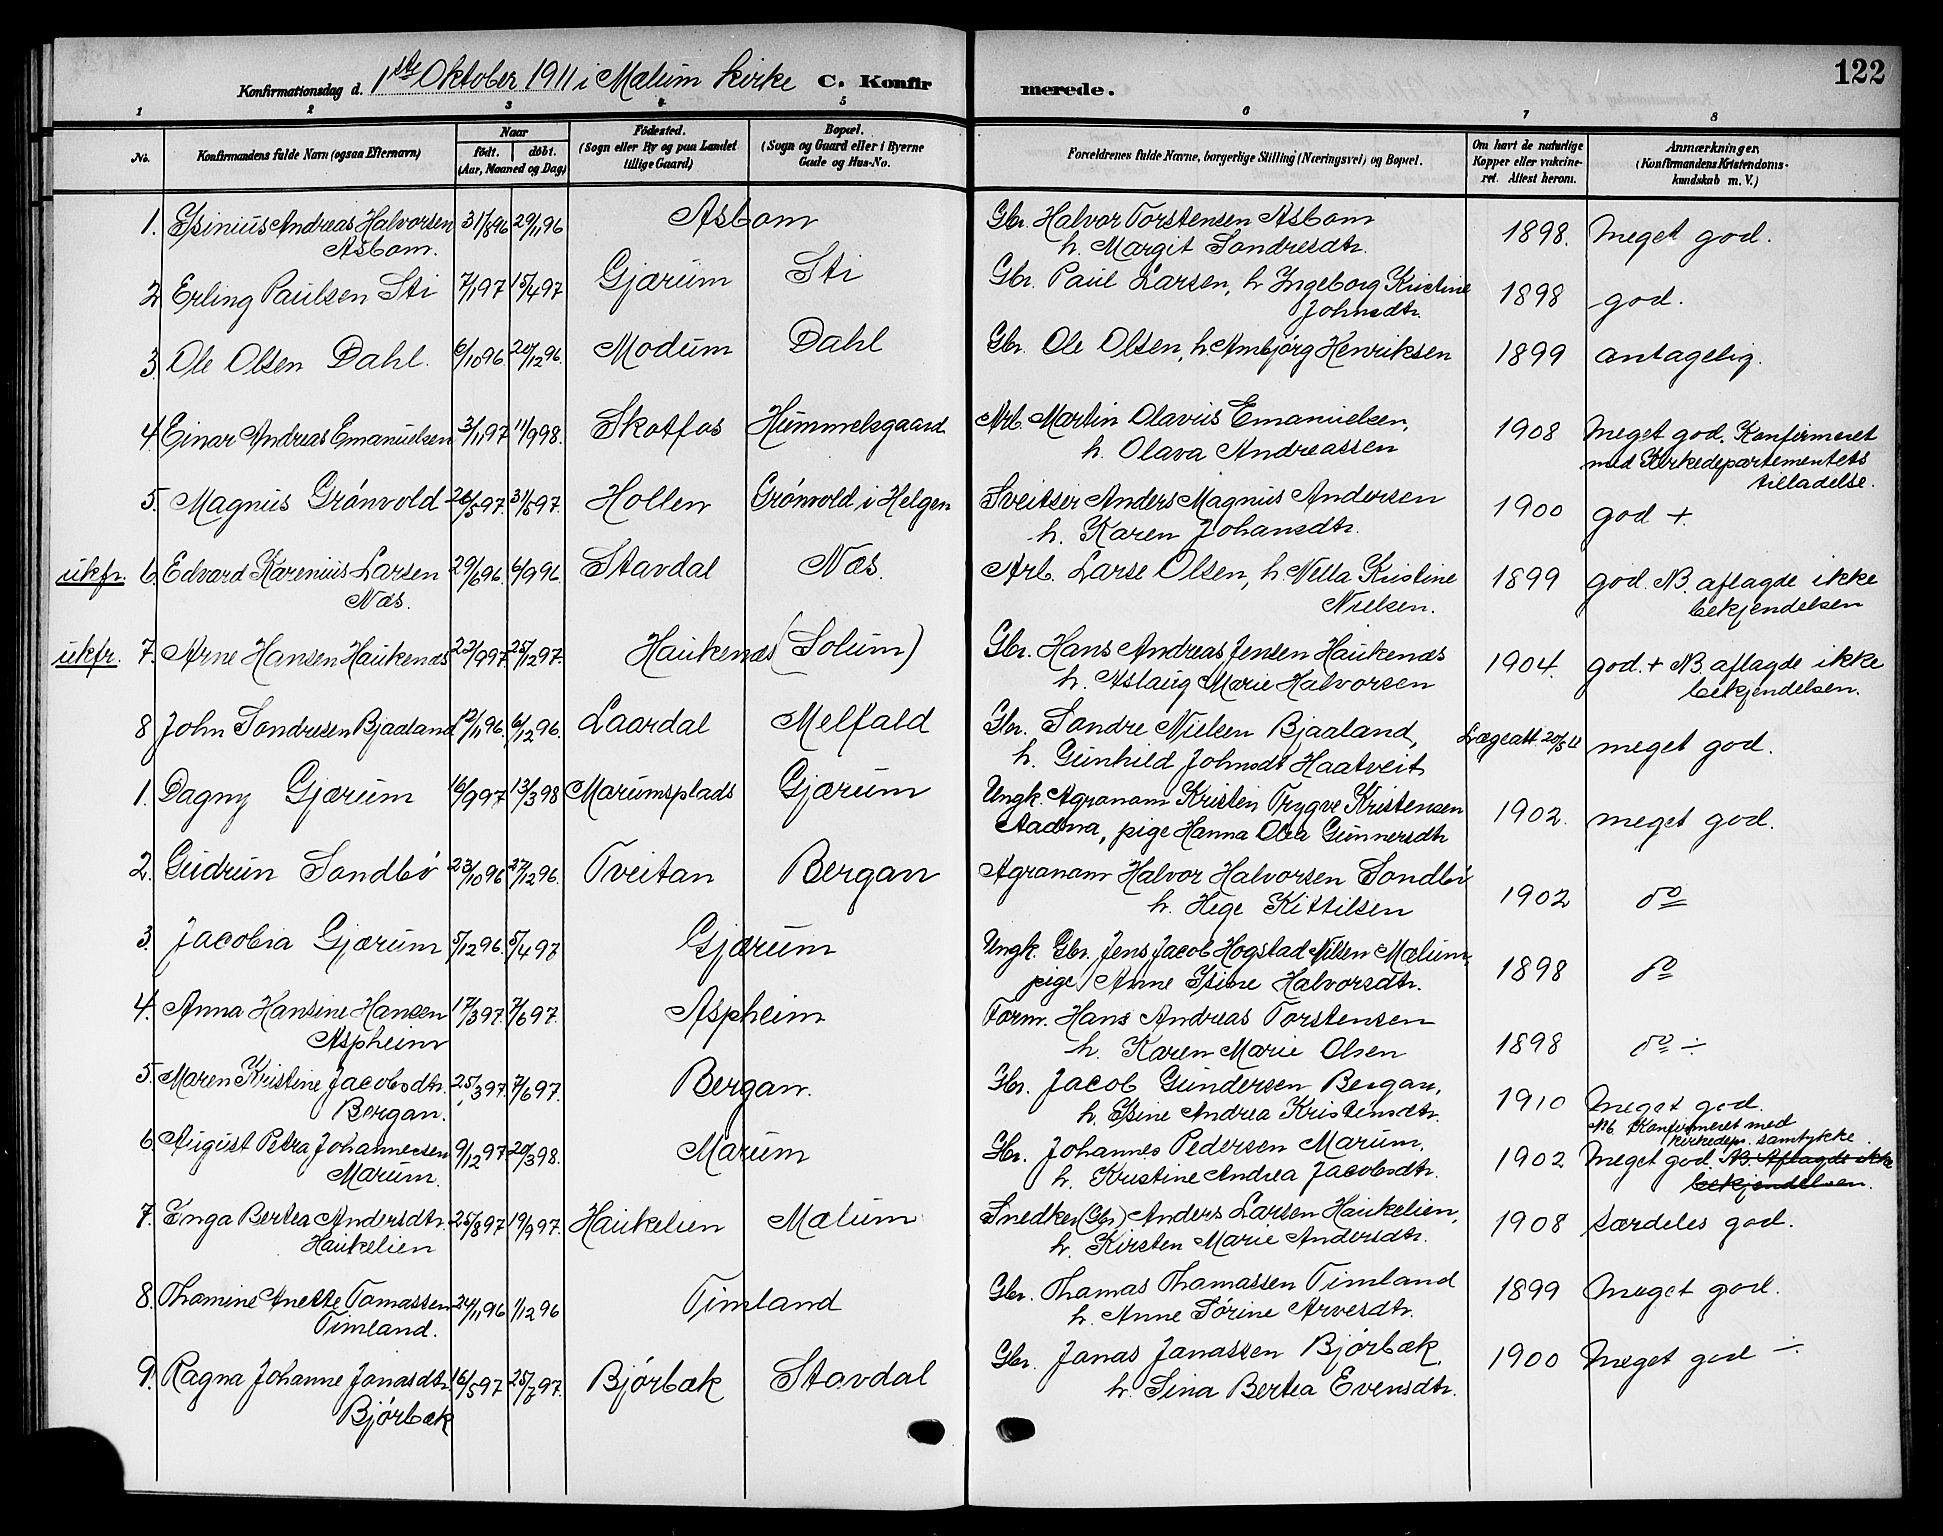 122
Konfirmationsdag d. 1ste Oktober 1911 i Mælum kirke C. Konfirmerede.
1 2 3 4 5 6 7 8
No. Konfirmandens fulde Navn (ogsaa Efternavn) Naar født. døbt. (Aar, Maaned og Dag) Fødested. (Sogn eller By og paa Landet tillige Gaard) Bopæl. (Sogn og Gaard eller i Byerne Gade og Hus-No. Forældrenes fulde Navne, borgerlige Stilling (Næringsvei) og Bopæl. Om havt de naturlige Kopper eller vakcineret. Attest herom. Anmærkninger, (Konfirmandens Kristendomskundskab m. V.)
1. Esinius Andreas Halvorsen 31/8 96 29/11 96 Asbom Gbr. Halvor Torstensen Asbom 1898. Meget god.
Asbom. h. Margit Sondresdtr.
2 Erling Paulsen Sti 7/1 97 15/4 97 Gjærum Sti Gbr. Paul Larsen, h. Ingeborg Kristine 1898 god.
Johnsdtr.
3. Ole Olsen Dahl. 6/10 96 20/12 96. Modum Dahl Gbr. Ole Olsen, h. Ambjørg Henriksen 1899 antagelig.
4. Einar Andreas Emanuelsen 3/11 97 11/9 98. Skotfos Hummelsgaard Arb. Martin Olavus Emanuelsen, 1908 Meget god. Konfirmeret
h. Olava Andreassen med Kirkedepartementets
tilladelse.
5. Magnus Grønvold 26/5 97. 31/8 97. Hollen Grønvold i Helgen Sveitser Anders Magnus Andersen 1900 god +.
h. Karen Johansdtr.
ukfr. 6. Edvard Karenius Larsen 29/6 96. 6/9 96. Stavdal Næs. Arb. Larse Olsen, h. Nella Kristine 1899 god. NB. aflagde ikke
Næs. Nielsen. bekjendelsen
ukfr. 7. Arne Hansen Haukenæs 23/9 97. 25/12 97. Haukenæs (Solum) Gbr. Hans Andreas Jensen Haukenæs 1904. god. + NB. aflagde ikke
h. Aslaug Marie Halvorsen bekjendelsen.
8 John Sondresen Bjaaland 12/11 96. 6/12 96. Laardal Melfald Gbr. Sondre Nielsen Bjaaland, Lægeatt. 20/5 11 meget god.
h. Gunhild Johnsdt Haatveit
1. Dagny Gjærum 16/9 97 13/3 98 Marumsplads Gjærum Ungk. Agronom Kristen Trygve Kristensen 1902. meget god.
Aadna, pige Hanna Olea Gunnersdtr
2. Gudrun Sondbø 23/10 96 27/12 96. Tveitan Bergan Agronom Halvor Halvorsen Sondbø 1902 do
h. Hege Kittilsen
3. Jacobia Gjærum 5/12 96. 5/4 97 Gjærum Ungk. Gbr. Jens Jacob Hogstad Nilsen Mælum, 1898 do
pige Anne Esine Halvorsdtr.
4. Anna Hansine Hansen 17/3 97. 7/6 97. Aspheim Form. Hans Andreas Torstensen 1898 do ÷
Aspheim h. Karen Marie Olsen
5. Maren Kristine Jacobsdtr. 25/3 97. 7/6 97. Bergan. Gbr. Jacob Gundersen Bergan, 1910 Meget god.
Bergan. h. Esine Andrea Kristensdtr. Nb. Konfirmeret med
kirkedep. samtykke.
6. August Petra Johannesen 9/12 97 20/3 98. Marum Gbr. Johannes Pedersen Marum, 1902 Meget god. NB. Aflagde ikke
Marum. h. Kristine Andrea Jacobsdtr. bekjendelsen.
7. Enga Bertea Andersdtr. 25/8 97 19/9 97. Haukelien Mælum Snedker (Gbr.) Anders Larsen Haukelien, 1908 særdeles god.
Haukelien h. Kirsten Marie Andersdtr.
8. Thomine Anette Tomassen 24/11 96 1/12 96 Timland Gbr. Thomas Thomassen Timland 1899 Meget god.
Timland. h. Anne Sørine Arvesdtr.
9. Ragna Johanne Jonasdtr. 16/5 97 25/7 97. Bjørbæk Stavdal Gbr. Jonas Jonassen Bjørbæk, 1900 Meget god ÷.
Bjørbæk h. Sina Bertea Evensdtr.